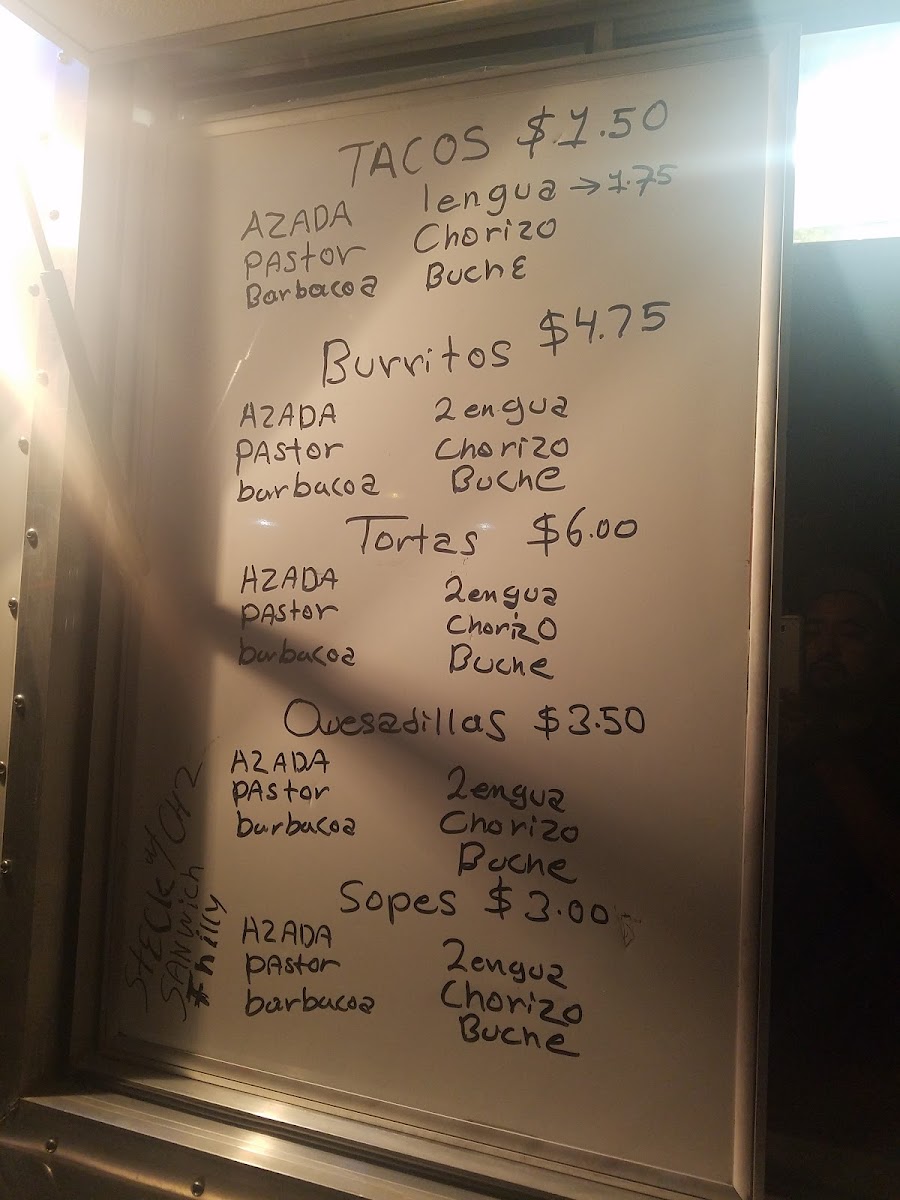 TACOS $1.50
AZADA lengua → 1.75
PAStor Chorizo
Barbacoa Buche
Burritos $4.75
AZADA Lengua
PAStor Chorizo
barbacoa Buche
Tortas $6.00
AZADA Lengua
PAStor Chorizo
barbacoa Buche
Quesadillas $3.50
AZADA Lengua
PAStor Chorizo
barbacoa Buche
Sopes $3.00
AZADA Lengua
PAStor Chorizo
barbacoa Buche
StECK w/
SANWich
Philly